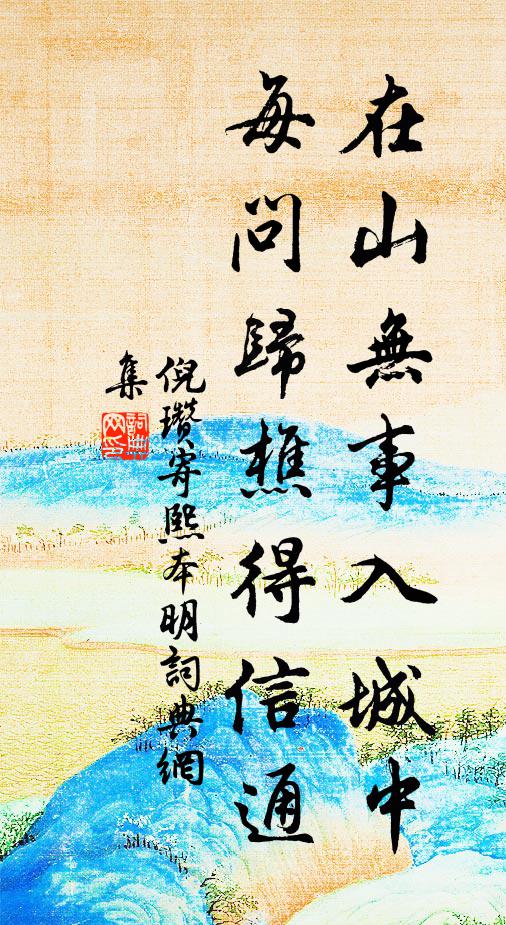 在山無事入城中
每問歸樵得信通
倪瓚寄熙本明詞典網
集
詞典網印